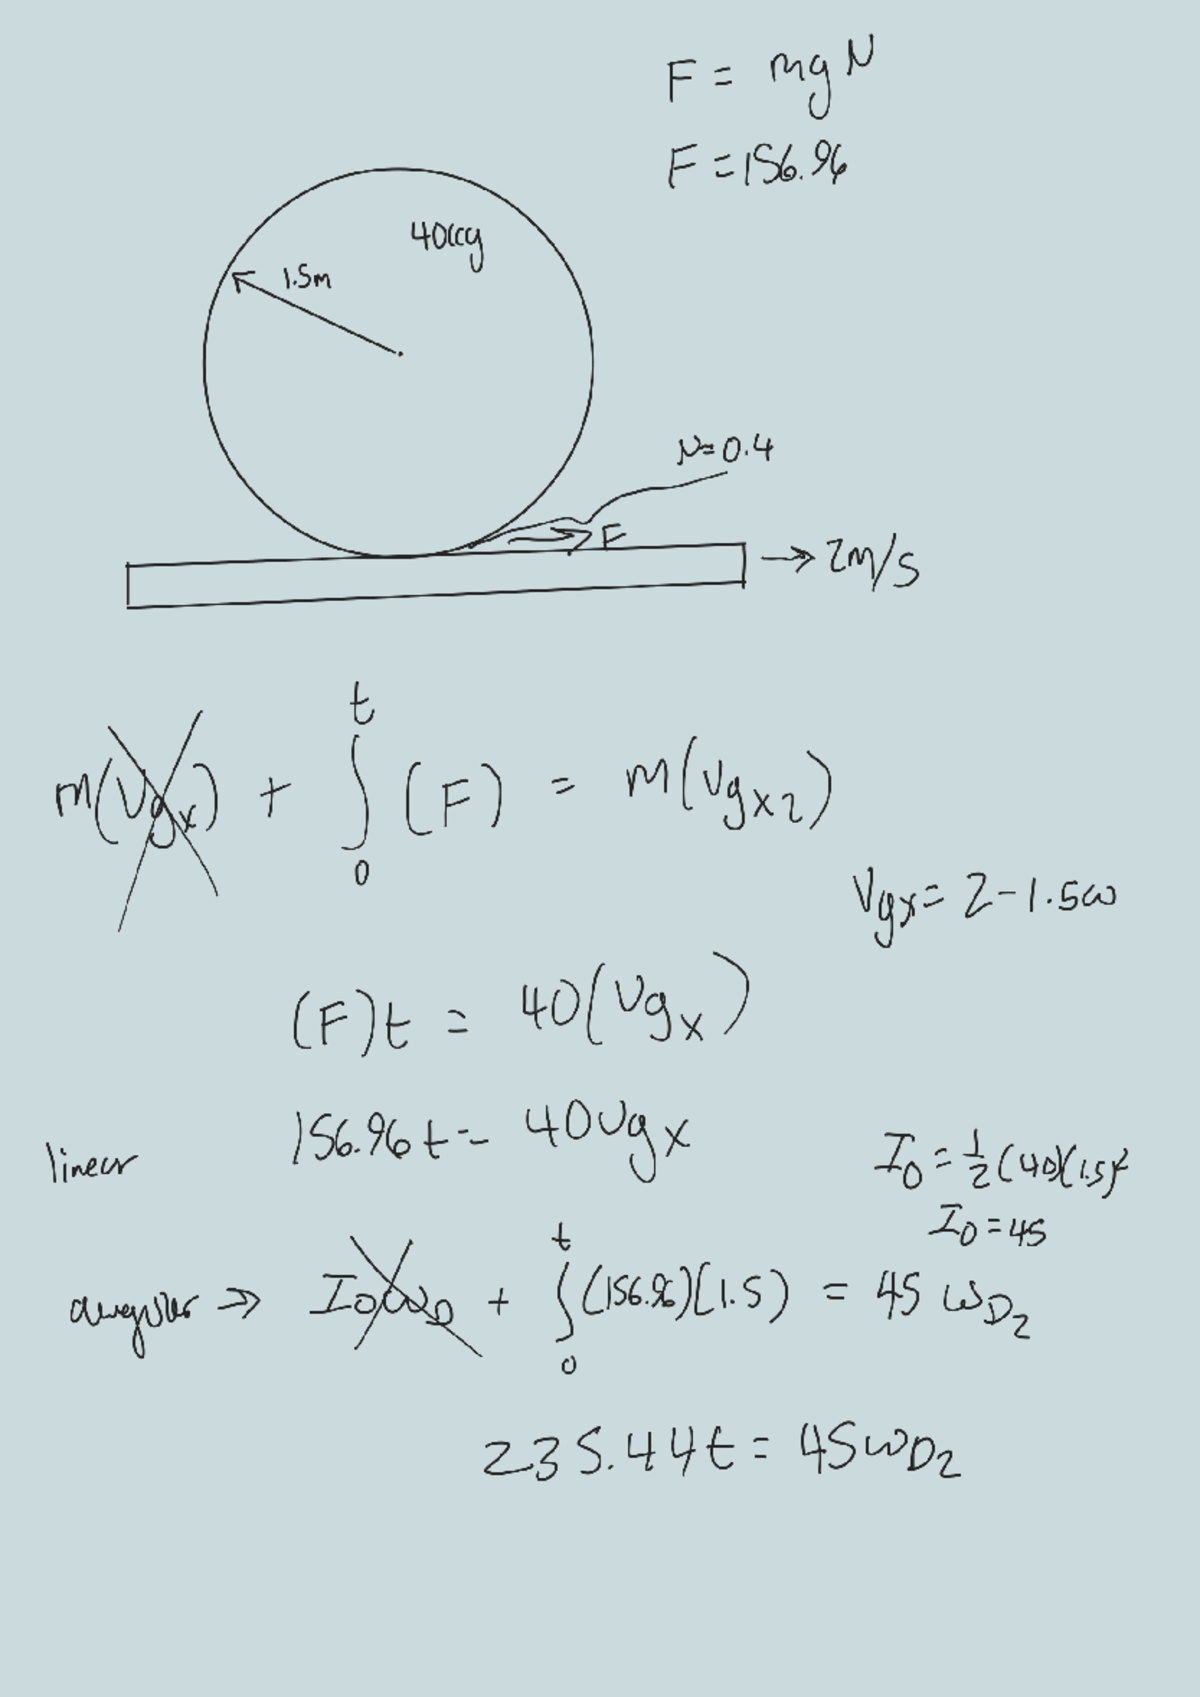 F = mg N
F = 156.96
40kg
1.5m
N=0.4
F
2m/s
m(Vgx) + ∫₀ᵗ (F) = m(Vgx2)
Vgx = 2-1.5ω
(F)t = 40(Vgx)
linear 156.96t = 40Vgx
I₀ = ½(40)(1.5)²
I₀ = 45
angular → I_Dω_D + ∫₀ᵗ (156.96)(1.5) = 45 ω_D₂
235.44t = 45ω_D₂